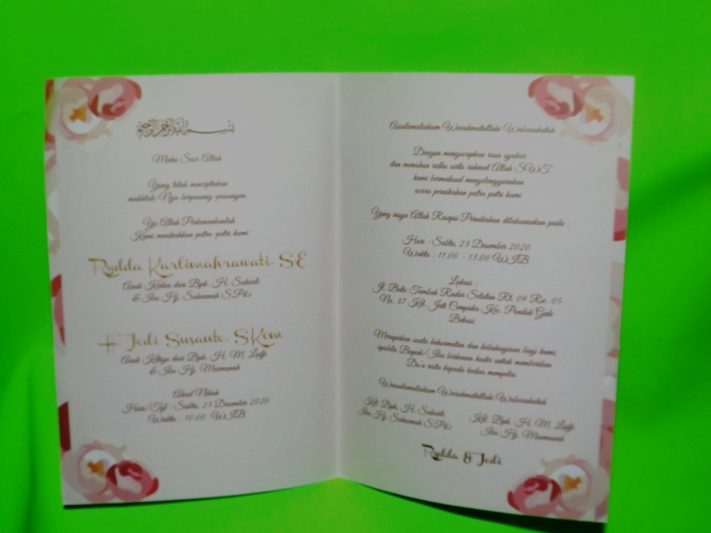 بسم الله الرحمن الرحيم
Maha Suci Allah
Yang telah menciptakan
makhluk-Nya berpasang-pasangan.
Ya Allah Perkenankanlah
Kami menikahkan putra-putri kami
Rydda Kartimahrawati, SE
Anak Kedua dari Bpk. H. Sukardi
& Ibu Hj. Suharmah S.Pd.
H. Jodi Susanto, SKom
Anak Ketiga dari Bpk. H. M.
& Ibu Hj. Masmamah
Akad Nikah
Hari/Tgl : Sabtu, 25 Desember 2020
Waktu : 10.00 WIB
Assalamualaikum Warahmatullahi Wabarakatuh
Dengan mengucapkan rasa syukur
dan memohon ridho serta rahmad Allah SWT
kami bermaksud menyelenggarakan
acara pernikahan putra putri kami
Yang insya Allah Resepsi Pernikahan dilaksanakan pada :
Hari : Sabtu, 25 Desember 2020
Waktu : 11.00 - 13.00 WIB
Lokasi :
Jl. Batu Tumbuh Raden Selatan Rt. 04 Rw. 05
No. 17 Kel. Jati Cempaka Kec. Pondok Gede
Bekasi
Merupakan suatu kehormatan dan kebahagiaan bagi kami,
apabila Bapak/Ibu berkenan hadir untuk memberikan
Do'a restu kepada kedua mempelai
Wassalamualaikum Warahmatullahi Wabarakatuh
Kel. Bpk. H. Sukardi
Ibu Hj. Suharmah S.Pd.
Kel. Bpk. H. M.
Ibu Hj. Masmamah
Rydda & Jodi